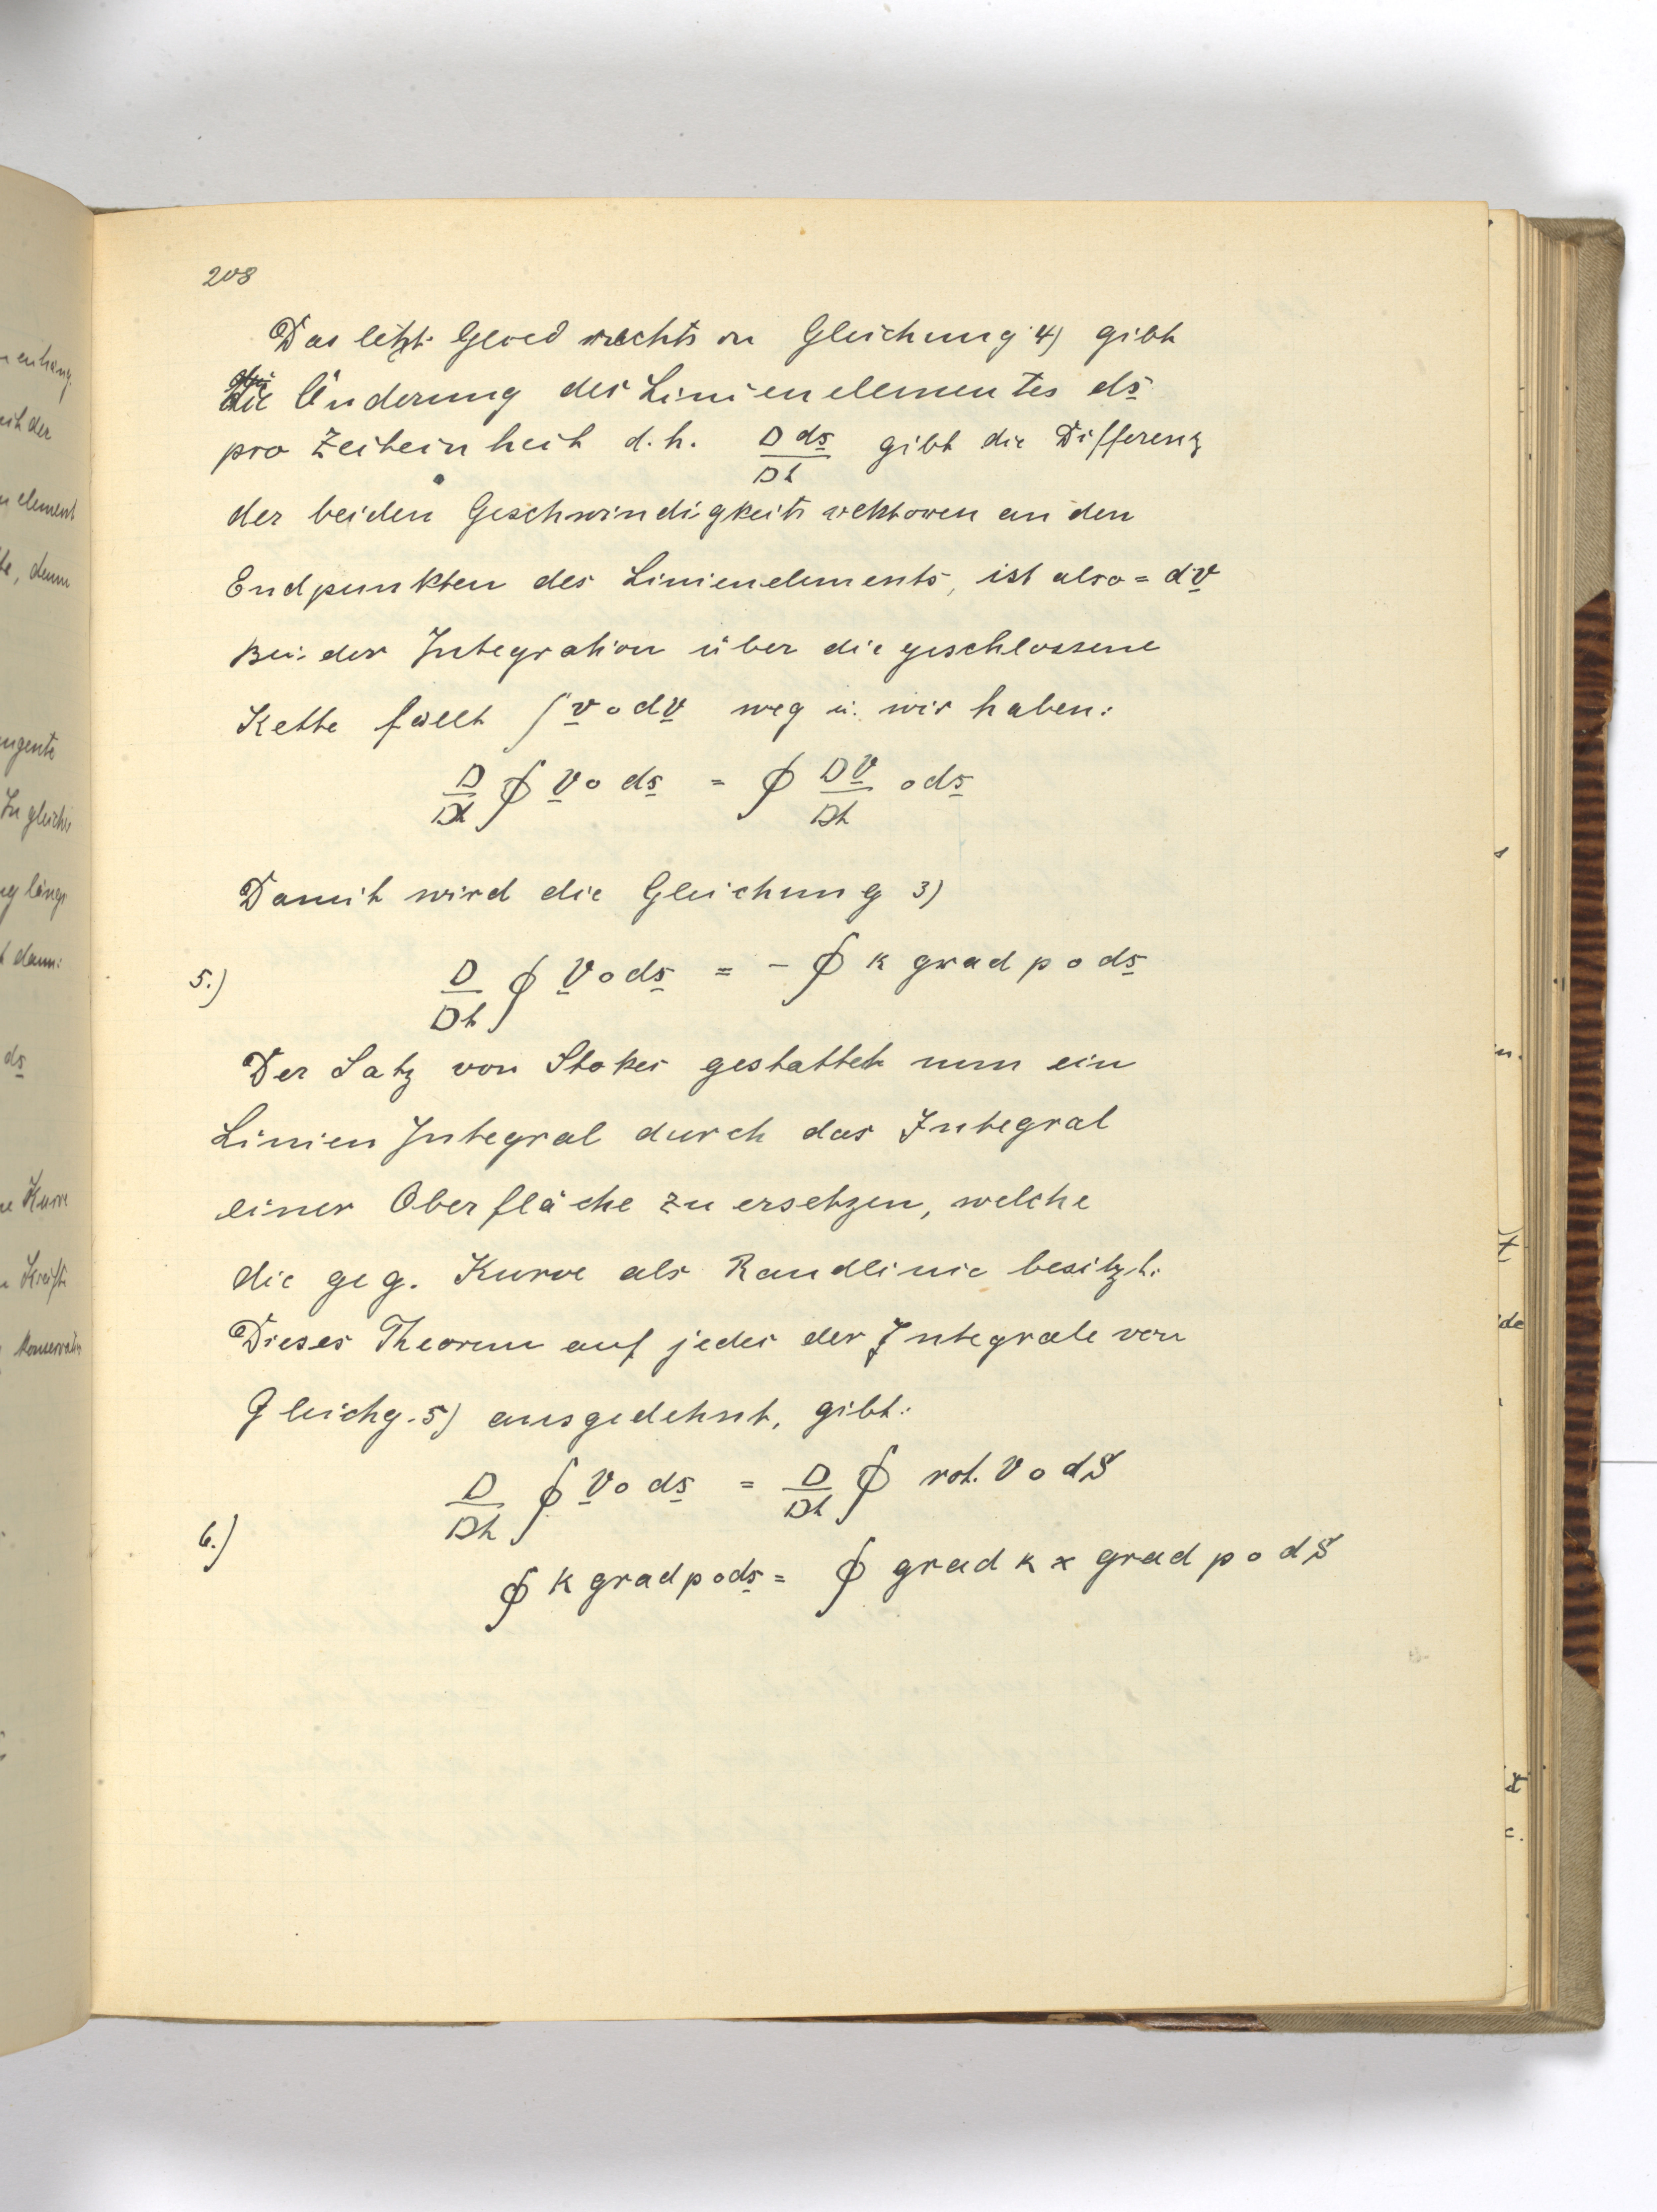 208
Das letzt. Glied rechts in Gleichung 4) gibt
die Änderung des Linienelementes ds
pro Zeiteinheit d.h. D ds / Dt gibt die Differenz
der beiden Geschwindigkeitsvektoren an den
Endpunkten des Linienelements, ist also = dv
Bei der Integration über die geschlossene
Kette fällt ∫ v ∘ dv weg u. wir haben:
D/Dt ∮ v ∘ ds = ∮ Dv/Dt ∘ ds
Damit wird die Gleichung 3)
5.) D/Dt ∮ v ∘ ds = - ∮ k grad p ∘ ds
Der Satz von Stokes gestattet nun ein
Linien Integral durch das Integral
einer Oberfläche zu ersetzen, welche
die geg. Kurve als Randlinie besitzt.
Dieses Theorem auf jedes der Integrale von
Gleichg. 5) ausgedehnt, gibt:
D/Dt ∮ v ∘ ds = D/Dt ∮ rot. v ∘ dS
6.)
∮ k grad p ∘ ds = ∮ grad k × grad p ∘ dS